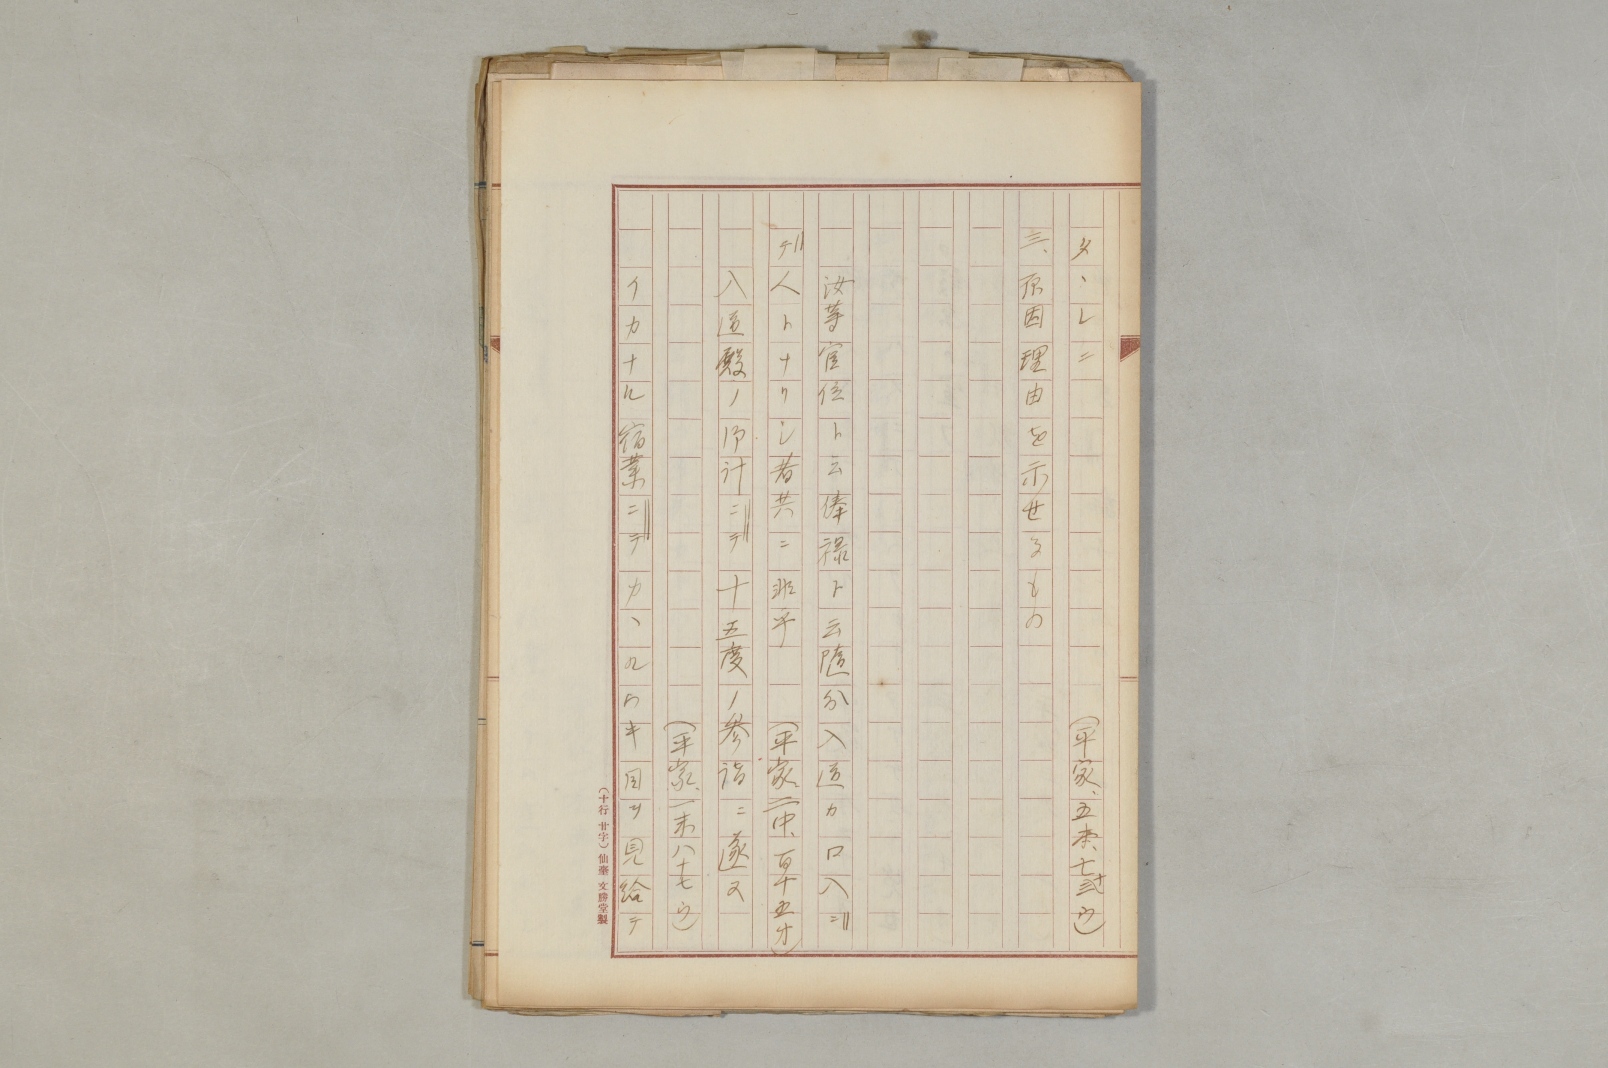 タヽレニ　（平家、五本、七十弐ウ）
三、原因理由を示せるもの
汝等官位ト云俸禄ト云随分入道カ口入ニ
テ人トナリシ者共ニ非乎　（平家、二中、百十五オ）
入道殿ノ御計ニテ十五度ノ参詣ニ遂又
（平家、一末八十七ウ）
イカナル宿業ニテカヽルウキ目ヲ見給テ
（十行 廿字）仙臺 文勝堂製